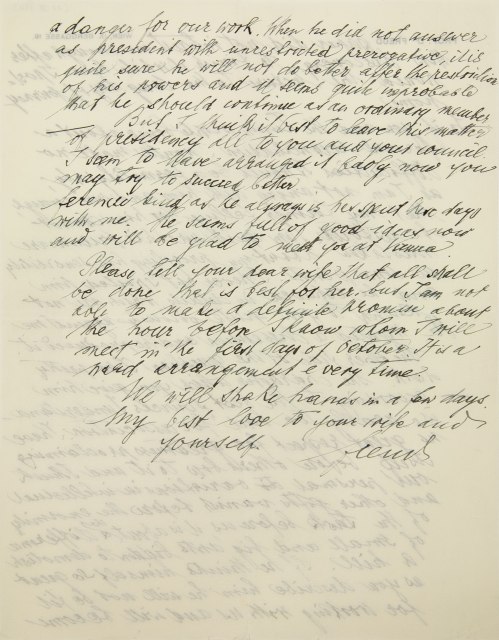 a danger for our work. When he did not answer
as president with unrestricted prerogative, it is
quite sure he will not do better after the restriction
of his powers and it seems quite improbable
that he should continue as an ordinary member
But I think it best to leave this matter
of presidency all to you and your council.
I seem to have arranged it badly now you
may try to succeed better
Ferenczi kind as he always is has spent two days
with me. He seems full of good ideas now
and will be glad to meet you at Vienna
Please tell your dear wife that all shall
be done that is best for her. but I am not
able to make a definite promise about
the hour before I know whom I will
meet in the first days of October. It is a
hard arrangement every time
We will shake hands in a few days.
My best love to your wife and
yourself.
Freud